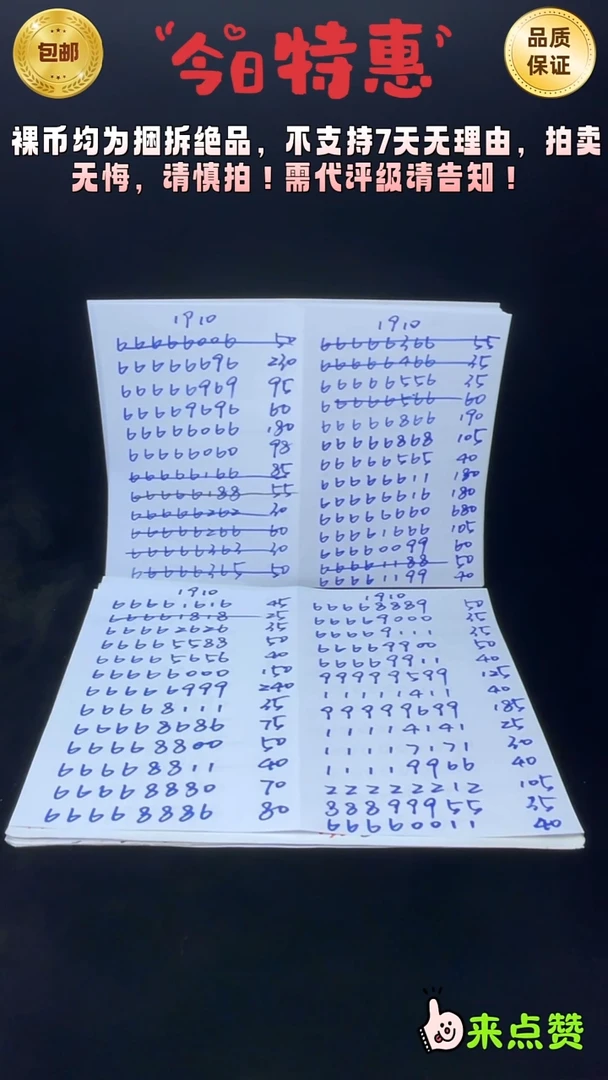 包邮
今日特惠
品质
保证
裸币均为捆拆绝品，不支持7天无理由，拍卖
无悔，请慎拍！需代评级请告知！
1910
66666006 50
66666696 230
66666969 95
66669696 60
66666066 180
66666060 98
66666166 85
66666188 55
66666262 30
66666266 60
66666363 30
66666365 50
1910
66666366 55
66666466 35
66666556 35
66666566 60
66666866 190
66666868 105
66666565 40
66666611 180
66666616 180
66666660 680
66661666 105
66660099 60
66661188 50
66661199 40
1910
66661616 45
66661818 25
66662626 35
66665588 50
66665656 40
66666000 150
66666999 240
66668111 35
66668686 75
66668800 50
66668811 40
66668880 70
66668886 80
1910
66668889 50
66669000 35
66669111 35
66669900 50
66669911 40
99999599 125
11111411 40
99999699 185
11114141 25
11117171 30
11119966 40
22222212 105
88899955 35
66660011 40
来点赞